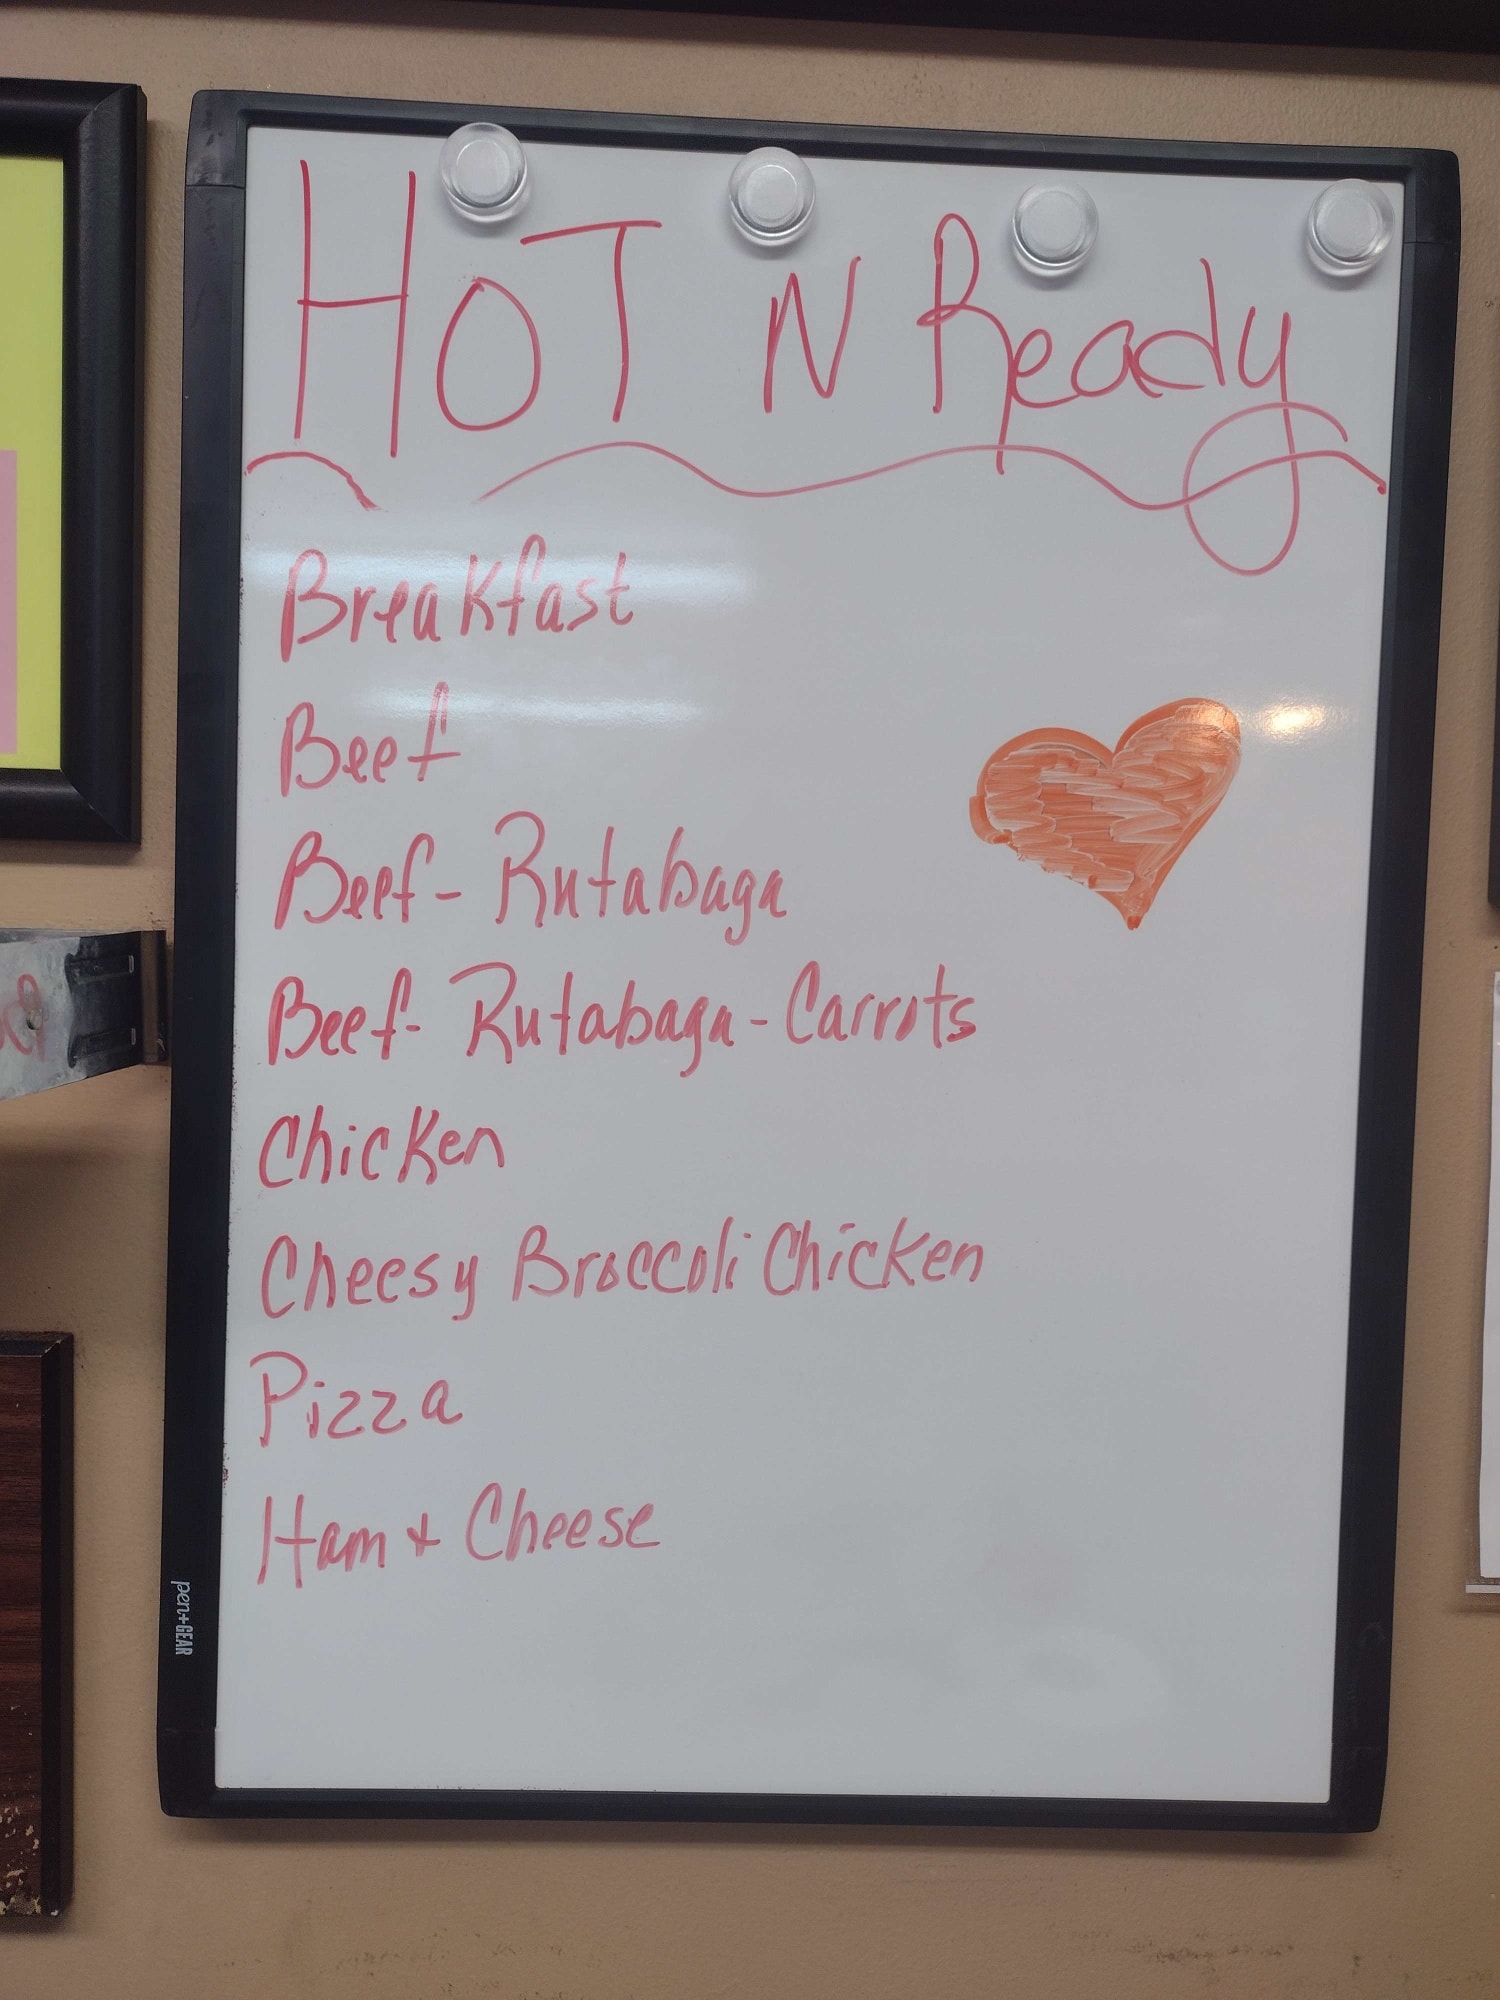 HoT N Ready
Breakfast
Beef
Beef - Rutabaga
Beef - Rutabaga - Carrots
Chicken
Cheesy Broccoli Chicken
Pizza
Ham + Cheese
pen+GEAR